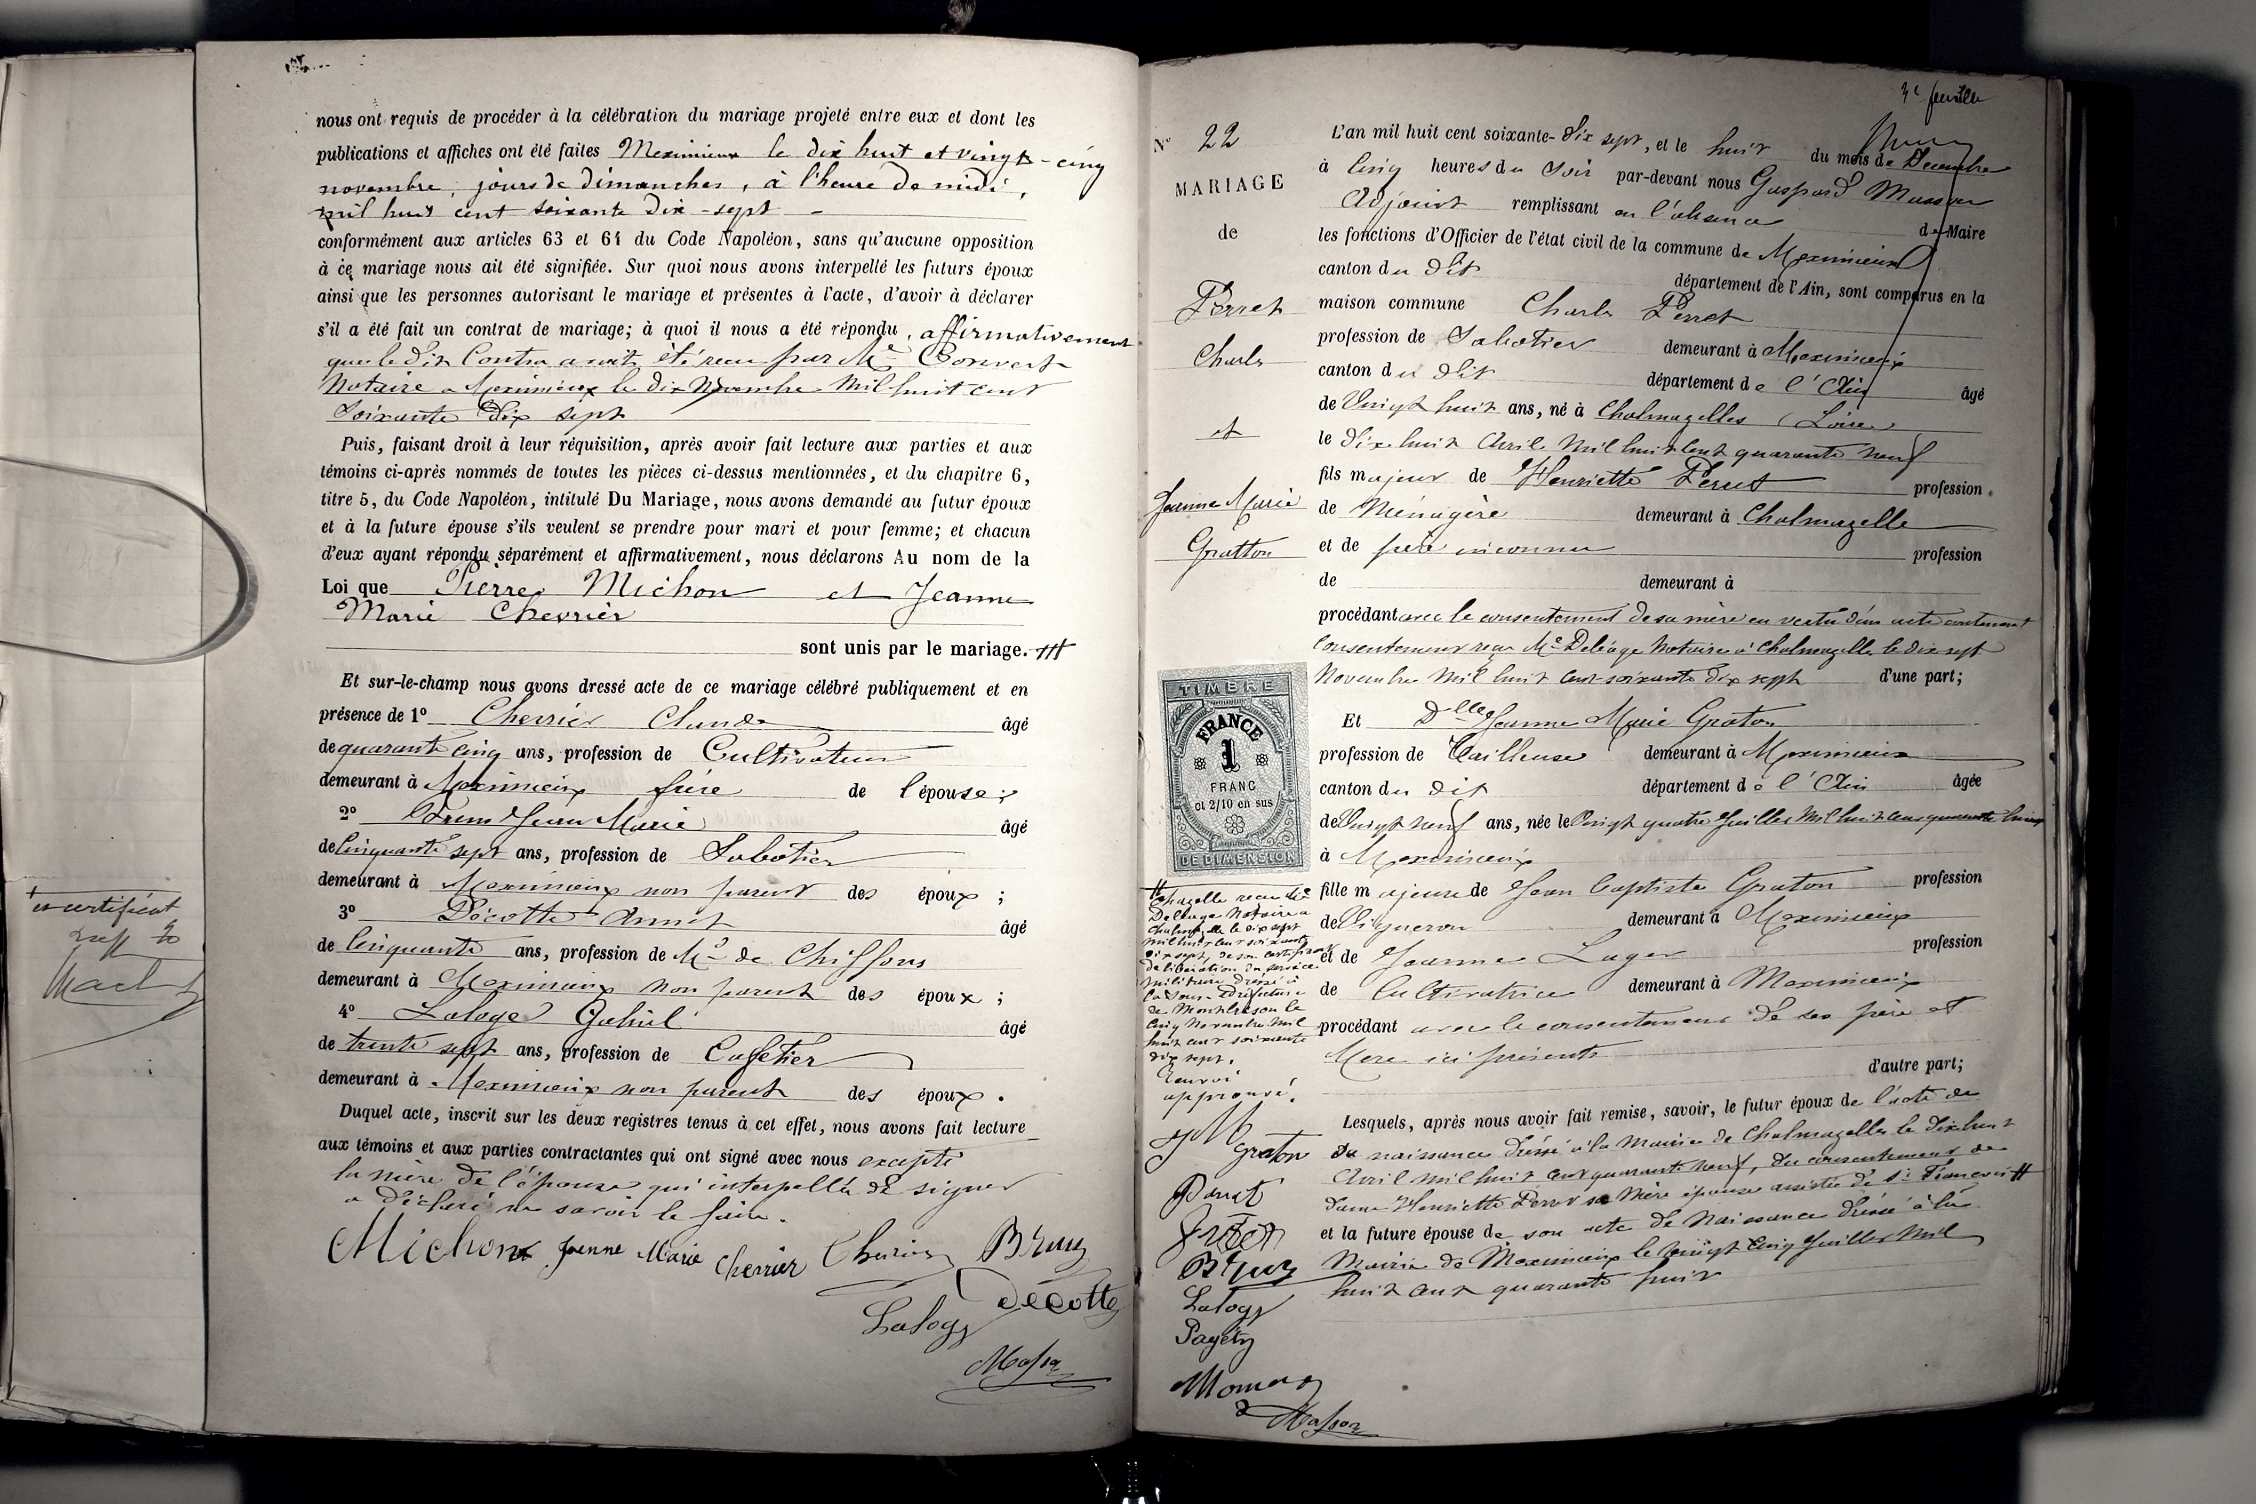 nous ont requis de procéder à la célébration du mariage projeté entre eux et dont les
publications et affiches ont été faites Meximieux le dix huit et vingt-cinq
novembre, jours de dimanches, à l'heure de midi,
mil huit cent soixante dix-sept -
conformément aux articles 63 et 64 du Code Napoléon, sans qu'aucune opposition
à ce mariage nous ait été signifiée. Sur quoi nous avons interpellé les futurs époux
ainsi que les personnes autorisant le mariage et présentes à l'acte, d'avoir à déclarer
s'il a été fait un contrat de mariage; à quoi il nous a été répondu, affirmativement
que le dit Contra avait été recu par Me Convert
Notaire a Meximieux le dix Novembre Mil huit cent
Soixante dix sept
Puis, faisant droit à leur réquisition, après avoir fait lecture aux parties et aux
témoins ci-après nommés de toutes les pièces ci-dessus mentionnées, et du chapitre 6,
titre 5, du Code Napoléon, intitulé Du Mariage, nous avons demandé au futur époux
et à la future épouse s'ils veulent se prendre pour mari et pour femme; et chacun
d'eux ayant répondu séparément et affirmativement, nous déclarons Au nom de la
Loi que Pierre Michon et Jeanne
Marie Cherrier
sont unis par le mariage.
Et sur-le-champ nous avons dressé acte de ce mariage célébré publiquement et en
présence de 1° Cherrier Claude âgé
de quarante cinq ans, profession de Cultivateur
demeurant à Meximieux frère de l'épouse;
2° Jean Marie âgé
de Cinquante sept ans, profession de Sabotier
demeurant à Meximieux non parent des époux ;
3° Décotte Annet âgé
de Cinquante ans, profession de Md de Chiffons
demeurant à Meximieux non parent des époux ;
4° Laloge Gabriel âgé
de trente sept ans, profession de Cafetier
demeurant à Meximieux non parent des époux .
Duquel acte, inscrit sur les deux registres tenus à cet effet, nous avons fait lecture
aux témoins et aux parties contractantes qui ont signé avec nous excepté
la mère de l'épouse qui interpellée de signer
a déclaré ne savoir le faire.
Michon Jeanne Marie Cherrier Cherrier Brun
Décotte
Laloge
Masson
et certificat
3e feuille
N° 22
MARIAGE
de
Perret
Charles
et
Jeanne Marie
Gratton
L'an mil huit cent soixante-dix sept, et le huit du mois de Decembre
à Cinq heures du Soir par-devant nous Gaspard Masson
Adjoint remplissant en l'absence de Maire
les fonctions d'Officier de l'état civil de la commune de Meximieux
canton du dit département de l'Ain, sont comparus en la
maison commune Charles Perret
profession de Sabotier demeurant à Meximieux
canton du dit département de l'Ain âgé
de Vingt huit ans, né à Chalmazelles (Loire)
le dix huit Avril Mil huit Cent quarante neuf
fils majeur de Henriette Perret profession
de Ménagère demeurant à Chalmazelle
et de père inconnu profession
de demeurant à
procédant avec le consentement de sa mère en vertu d'un acte contenant
Consentement reçu Me Deléage Notaire à Chalmazelle le dix sept
Novembre Mil huit Cent soixante dix sept d'une part;
Et Dlle Jeanne Marie Graton
profession de Tailleuse demeurant à Meximieux
canton du dit département de l'Ain âgée
de Vingt neuf ans, née le Vingt quatre Juillet Mil huit cent quarante huit
à Meximieux
fille majeure de Jean Baptiste Graton profession
de Vigneron demeurant à Meximieux
et de Jeanne Lager profession
de Cultivatrice demeurant à Meximieux
procédant avec le consentement de ses père et
Mere ici présents
d'autre part;
Lesquels, après nous avoir fait remise, savoir, le futur époux de l'acte de
sa naissance dressé à la Mairie de Chalmazelles le dix huit
Avril Mil huit Cent quarante neuf, du consentement de
dame Henriette Perret sa Mère épouse assistée de sr François #
et la future épouse de son acte de Naissance dressé à la
Mairie de Meximieux le vingt Cinq Juillet Mil
huit Cent quarante huit
TIMBRE
FRANCE
1
FRANC
et 2/10 en sus
DE DIMENSION
# Chazelle recu Me
Deléage Notaire a
Chalmazelle le dix sept
mil huit cent soixante
dix sept, de son certificat
de libération du service
militaire dressé à
la Sous-Préfecture
de Montbrison le
Cinq Novembre Mil
huit cent soixante
dix sept.
Renvoi
approuvé.
JM
Graton
Perret
Graton
Brun
Laloge
Masson